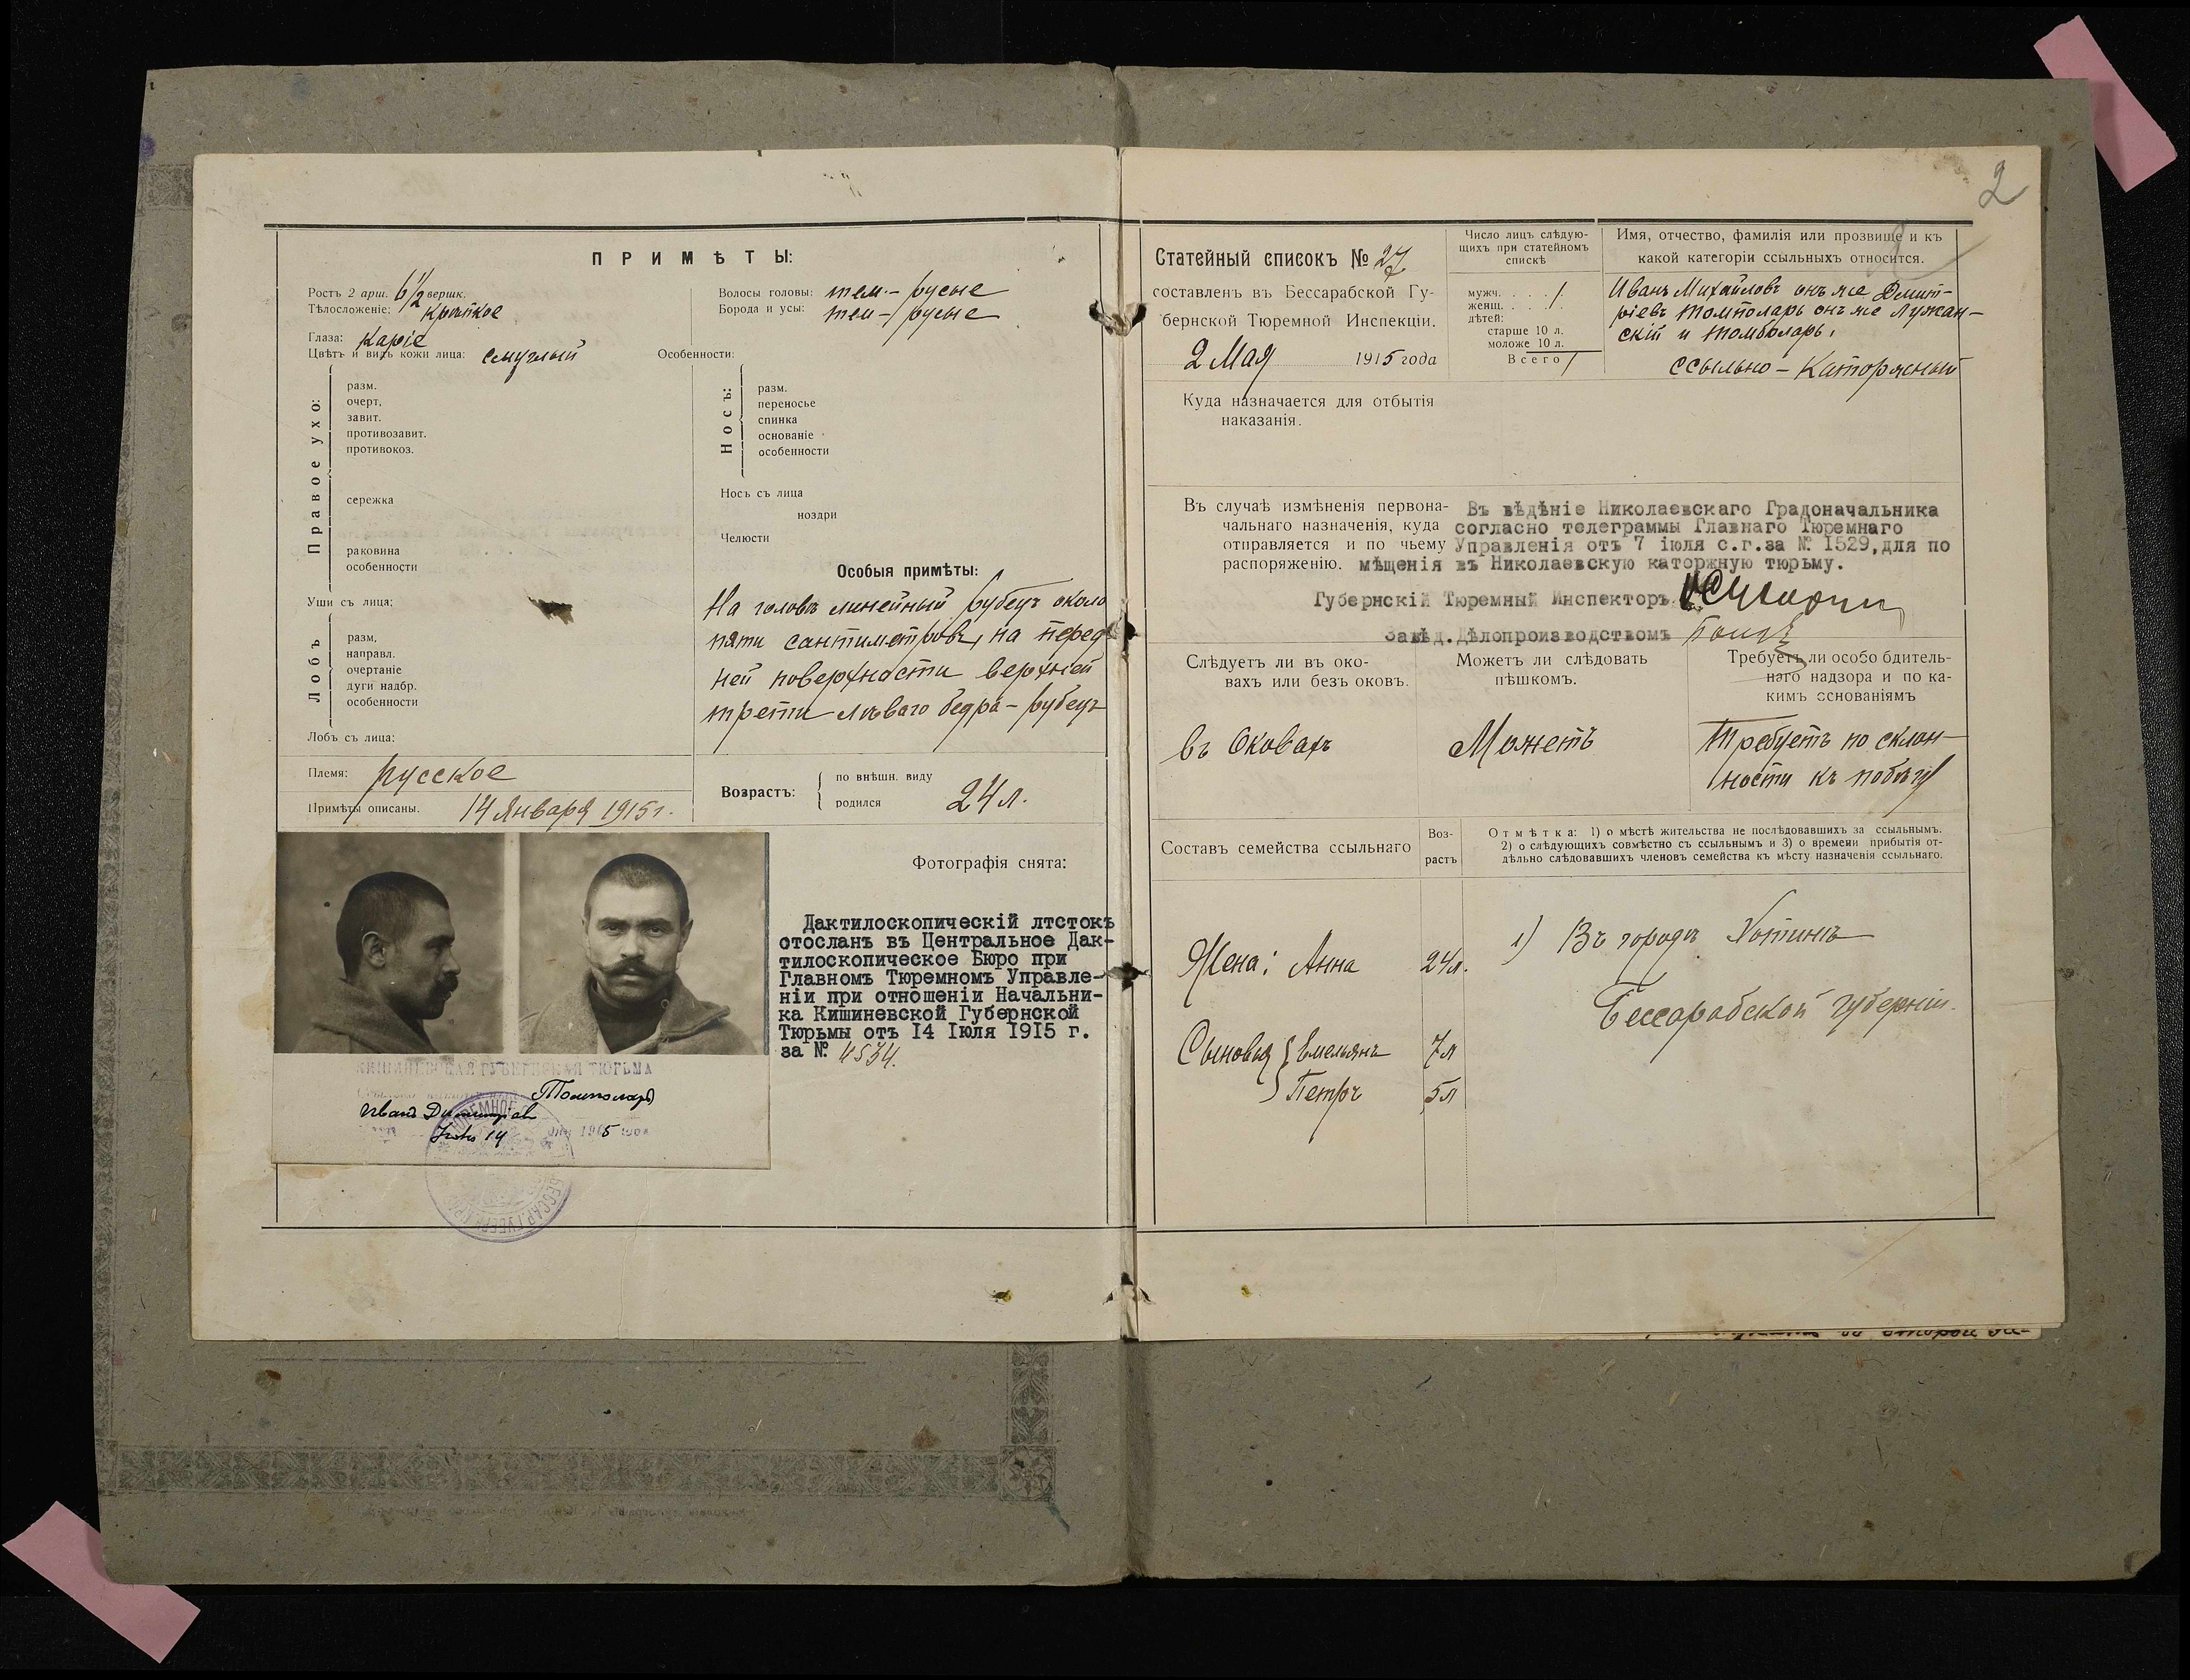 ПРИМѢТЫ:
Ростъ 2 арш. 6 1/2 вершк.
Тѣлосложеніе: Крѣпкое
Глаза: Каріе
Цвѣтъ и видъ кожи лица: смуглый
Волосы головы: тем.-русые
Борода и усы: тем-русые
Особенности:
Правое ухо:
разм.
очерт.
завит.
противозавит.
противокоз.
сережка
раковина
особенности
Уши съ лица:
Лобъ
разм.
направл.
очертаніе
дуги надбр.
особенности
Лобъ съ лица:
Носъ:
разм.
переносье
спинка
основаніе
особенности
Носъ съ лица
ноздри
Челюсти
Особыя примѣты:
На головѣ линейный рубецъ около
пяти сантиметровъ, на перед
ней поверхности верхней
трети лѣваго бедра - рубецъ
Племя: русское
Примѣты описаны. 14 Января 1915 г.
Возрастъ:
по внѣшн. виду
родился
24 л.
Фотографія снята:
Дактилоскопическій лтстокъ
отосланъ въ Центральное Дак-
тилоскопическое Бюро при
Главномъ Тюремномъ Управле-
ніи при отношеніи Начальни-
ка Кишиневской Губернской
Тюрьмы отъ 14 Іюля 1915 г.
за № 4534.
КИШИНЕВСКАЯ ГУБЕРНСКАЯ ТЮРЬМА
Томполарь
Иванъ Димитріевъ
14 1915
2
Статейный списокъ № 27
составленъ въ Бессарабской Гу-
бернской Тюремной Инспекціи.
2 Мая 1915 года
Число лицъ слѣдую-
щихъ при статейномъ
спискѣ
мужч. . . . . 1.
женщ. . . . 1.
дѣтей:
старше 10 л.
моложе 10 л.
Всего 1
Имя, отчество, фамилія или прозвище и къ
какой категоріи ссыльныхъ относится.
Иванъ Михайловъ онъ же Дмит-
ріевъ Томполарь онъ же Лужан-
скій и Томболарь.
ссыльно-Каторжный
Куда назначается для отбытія
наказанія.
Въ случаѣ измѣненія первона-
чальнаго назначенія, куда
отправляется и по чьему
распоряженію.
Въ вѣдѣніе Николаевскаго Градоначальника
согласно телеграммы Главнаго Тюремнаго
Управленія отъ 7 іюля с.г.за № 1529,для по
мѣщенія въ Николаевскую каторжную тюрьму.
Губернскій Тюремный Инспекторъ
Завѣд.Дѣлопроизводствомъ
Слѣдуетъ ли въ око-
вахъ или безъ оковъ.
Можетъ ли слѣдовать
пѣшкомъ.
Требуетъ ли особо бдитель-
наго надзора и по ка-
кимъ основаніямъ
въ Оковахъ
Можетъ
Требуетъ по склон-
ности къ побѣгу
Составъ семейства ссыльнаго
Воз-
растъ
Отмѣтка: 1) о мѣстѣ жительства не послѣдовавшихъ за ссыльнымъ.
2) о слѣдующихъ совмѣстно съ ссыльнымъ и 3) о времени прибытія от-
дѣльно слѣдовавшихъ членовъ семейства къ мѣсту назначенія ссыльнаго.
Жена: Анна 24 л.
Сыновья { Емельянъ 7 л
Петръ 5 л
1) Въ городѣ Хотинѣ
Бессарабской губерніи.